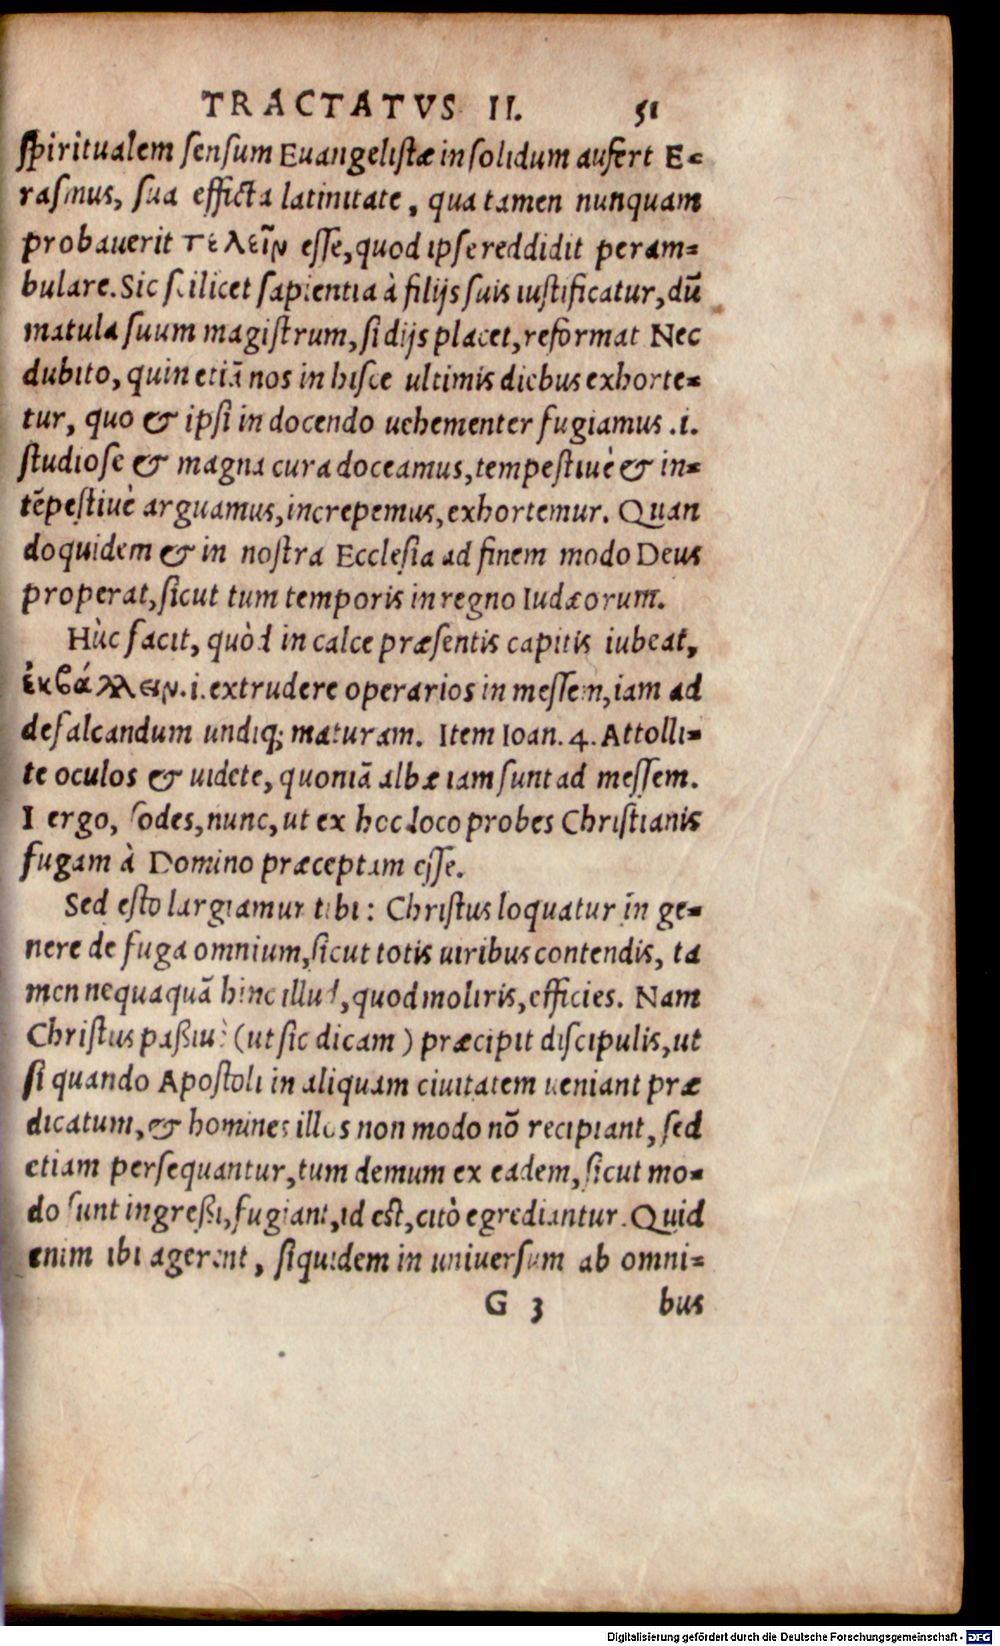 TRACTATVS II. 51
spiritualem sensum Euangelistæ in solidum aufert E-
rasmus, sua efficta latinitate, qua tamen nunquam
probauerit τελεῖν esse, quod ipse reddidit peram-
bulare. Sic scilicet sapientia à filijs suis iustificatur, dū
matula suum magistrum, si dijs placet, reformat Nec
dubito, quin etiā nos in hisce ultimis diebus exhorte-
tur, quo & ipsi in docendo uehementer fugiamus .i.
studiose & magna cura doceamus, tempestiuè & in-
tēpestiuè arguamus, increpemus, exhortemur. Quan
doquidem & in nostra Ecclesia ad finem modo Deus
properat, sicut tum temporis in regno Iudæorum.
Hùc facit, quòd in calce præsentis capitis iubeat,
ἐκβάλλειν .i. extrudere operarios in messem, iam ad
defalcandum undiq; maturam. Item Ioan. 4. Attolli-
te oculos & uidete, quoniā albæ iam sunt ad messem.
I ergo, sodes, nunc, ut ex hoc loco probes Christianis
fugam à Domino præceptam esse.
Sed esto largiamur tibi: Christus loquatur in ge-
nere de fuga omnium, sicut totis uiribus contendis, ta
men nequaquā hinc illud, quod moliris, efficies. Nam
Christus paßiuè (ut sic dicam) præcipit discipulis, ut
si quando Apostoli in aliquam ciuitatem ueniant præ
dicatum, & homines illos non modo nō recipiant, sed
etiam persequantur, tum demum ex eadem, sicut mo-
do sunt ingreßi, fugiant, id est, citò egrediantur. Quid
enim ibi agerent, siquidem in uniuersum ab omni-
G 3 bus
Digitalisierung gefördert durch die Deutsche Forschungsgemeinschaft - DFG